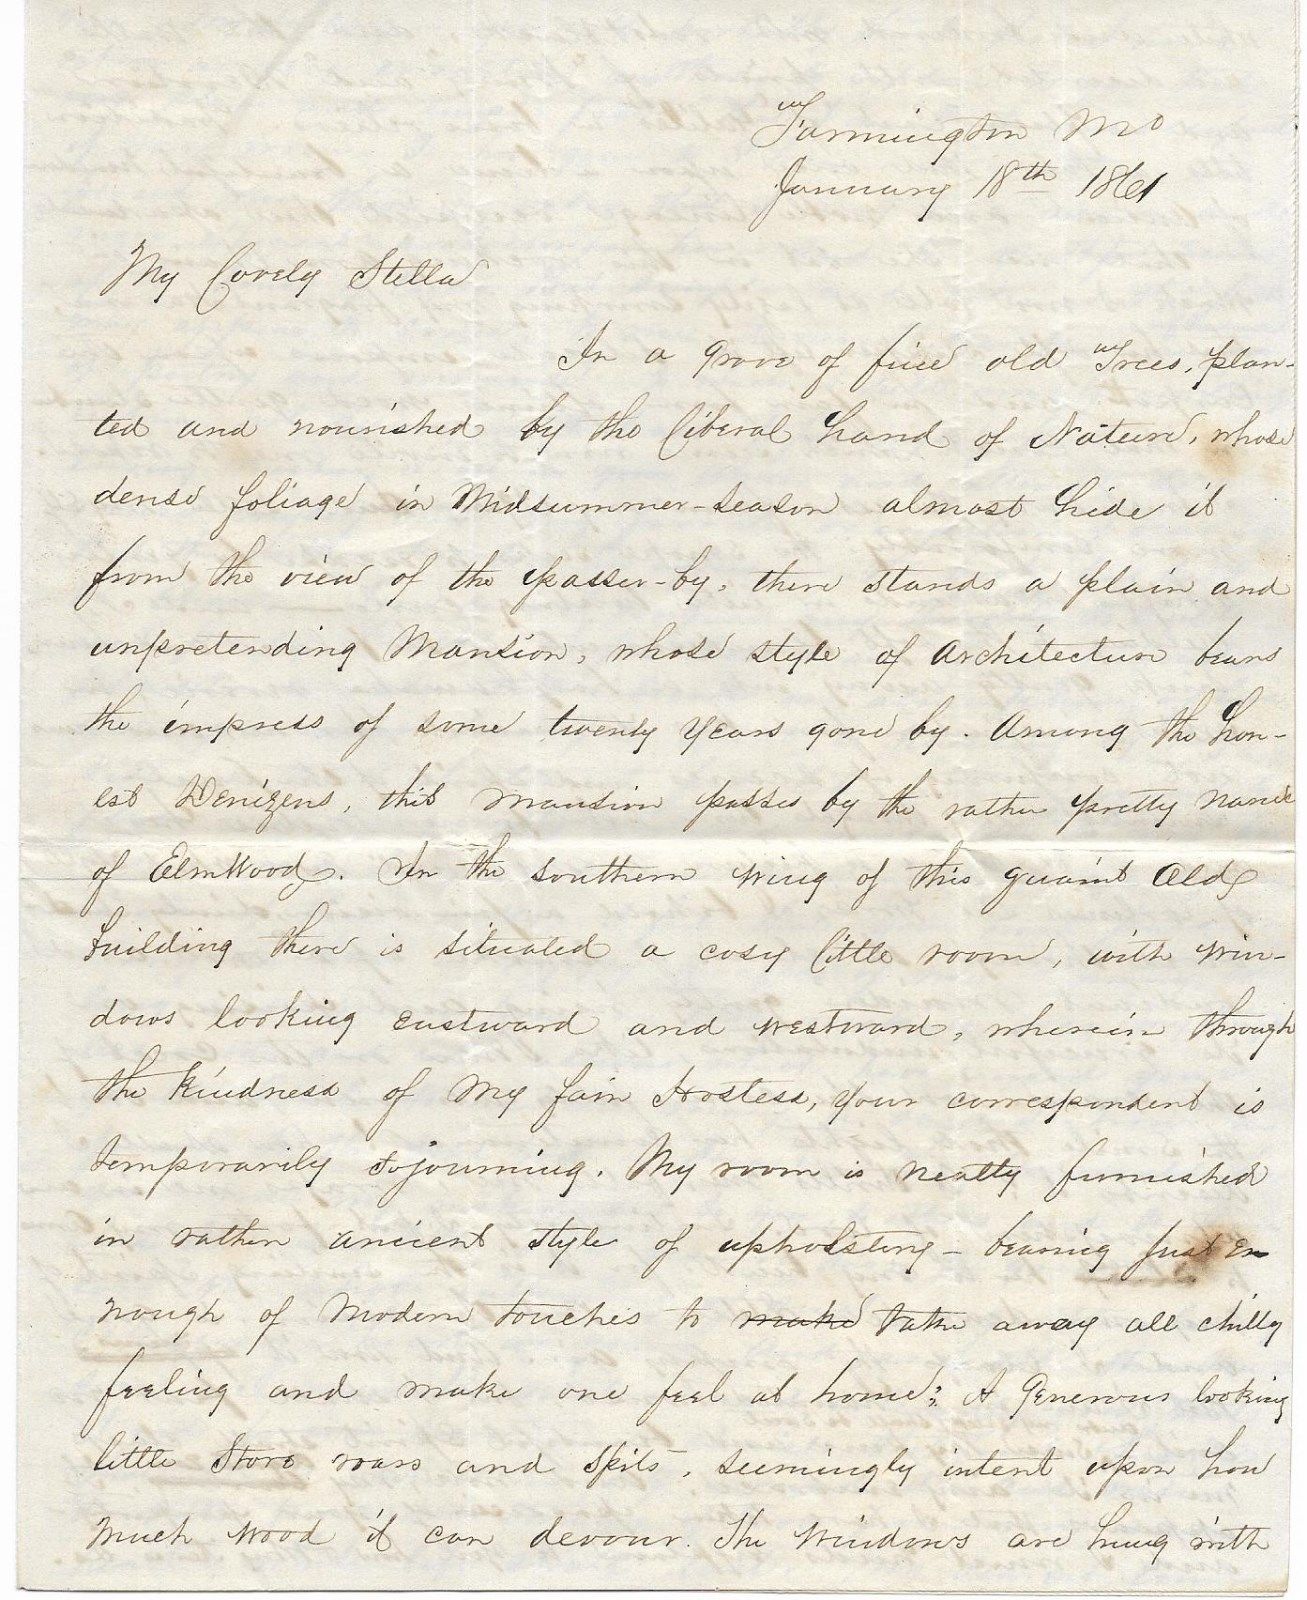 Farmington Mo
January 18th 1861
My Lovely Stella
In a grove of fine old Trees, plan-
ted and nourished by the liberal hand of Nature, whose
dense foliage in Midsummer-season almost hide it
from the view of the passer-by, there stands a plain and
unpretending Mansion, whose style of Architecture bears
the impress of some twenty years gone by. Among the hon-
est Denizens, this mansion passes by the rather pretty name
of ElmWood. In the southern wing of this quaint Old
building there is situated a cosy little room, with win-
dows looking eastward and westward, wherein through
the kindness of My fair Hostess, your correspondent is
temporarily sojourning. My room is neatly furnished
in rather ancient style of upholstery - bearing just en
nough of modern touches to make take away all chilly
feeling and make one feel at home; A Generous looking
little Stove roars and spits, seemingly intent upon how
much wood it can devour. The windows are hung with